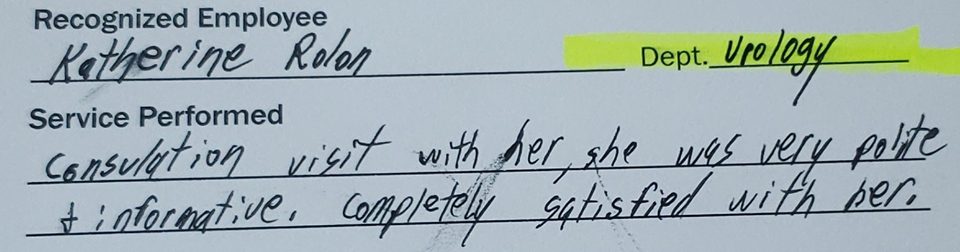 Recognized Employee
Katherine Rolon Dept. Urology
Service Performed
Consulation visit with her, she was very polite
+ informative. Completely satisfied with her.